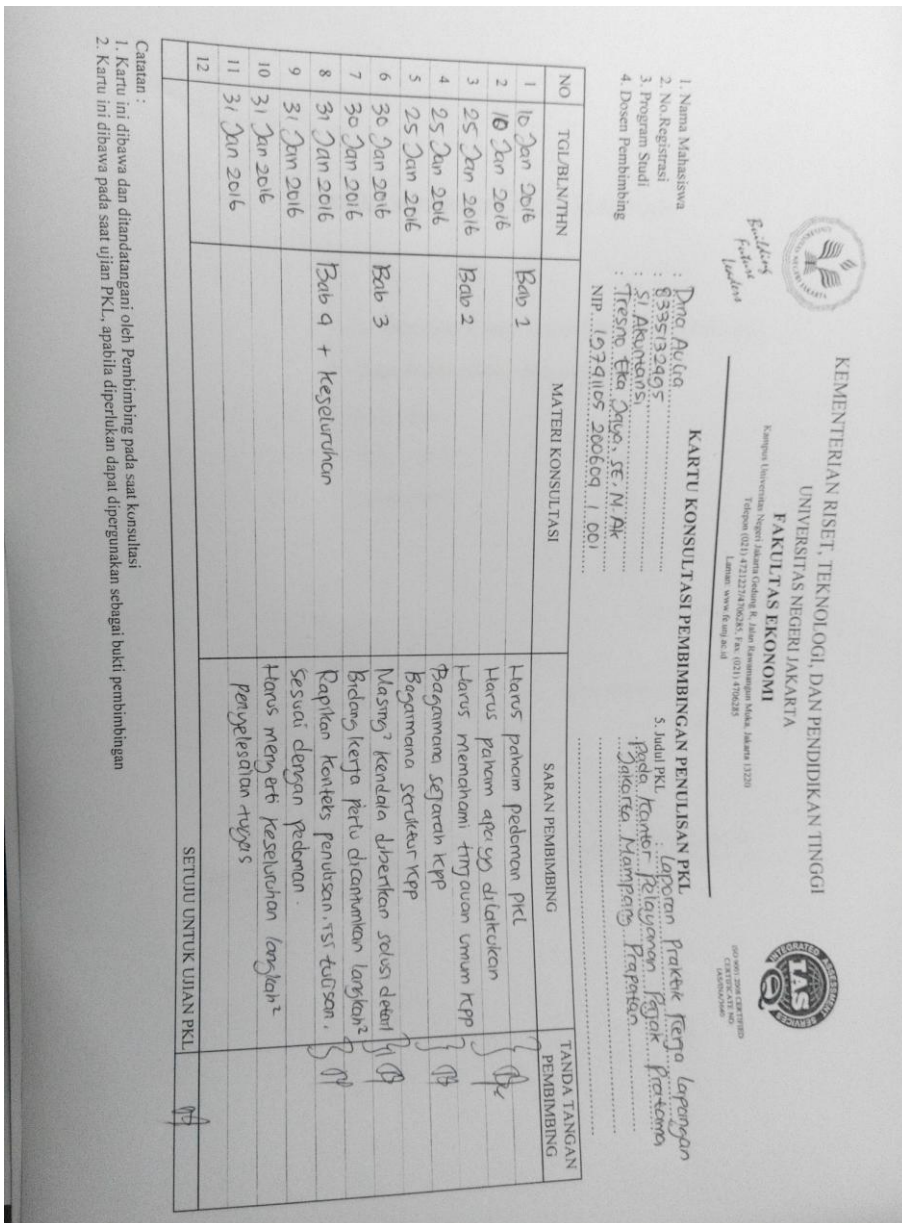 KEMENTERIAN RISET, TEKNOLOGI, DAN PENDIDIKAN TINGGI
UNIVERSITAS NEGERI JAKARTA
FAKULTAS EKONOMI
Kampus Universitas Negeri Jakarta Gedung R, Jalan Rawamangun Muka, Jakarta 13220
Telepon (021) 4721227/4706285, Fax: (021) 4706285
Laman: www.fe.unj.ac.id
Building
Future
Leaders
INTEGRATED ASSESSMENT SERVICES
IAS
ISO 9001:2008 CERTIFIED
CERTIFICATE NO:
KARTU KONSULTASI PEMBIMBINGAN PENULISAN PKL
1. Nama Mahasiswa : Dina Auira
2. No.Registrasi : 8335132495
3. Program Studi : S1 Akuntansi
4. Dosen Pembimbing : Tresno Eka Jaya, SE, M.Ak
NIP. 19791105 200609 1 001
5. Judul PKL : Laporan Praktik Kerja Lapangan
Pada Kantor Pelayanan Pajak Pratama
Jakarta Mampang Prapatan
NO TGL/BLN/THN MATERI KONSULTASI SARAN PEMBIMBING TANDA TANGAN PEMBIMBING
1 10 Jan 2016 Bab 1 Harus paham pedoman PKL
2 10 Jan 2016 Harus paham apa yg dilakukan
3 25 Jan 2016 Bab 2 Harus memahami tinjauan umum KPP
4 25 Jan 2016 Bagaimana sejarah KPP
5 25 Jan 2016 Bagaimana struktur KPP
6 30 Jan 2016 Bab 3 Masing² kendala diberikan solusi detail
7 30 Jan 2016 Bidang kerja perlu dicantumkan langkah²
8 31 Jan 2016 Bab 4 + Keseluruhan Rapikan konteks penulisan, isi tulisan,
9 31 Jan 2016 sesuai dengan pedoman.
10 31 Jan 2016 Harus mengerti keseluruhan langkah²
11 31 Jan 2016 penyelesaian tugas
12 SETUJU UNTUK UJIAN PKL
Catatan :
1. Kartu ini dibawa dan ditandatangani oleh Pembimbing pada saat konsultasi
2. Kartu ini dibawa pada saat ujian PKL, apabila diperlukan dapat dipergunakan sebagai bukti pembimbingan